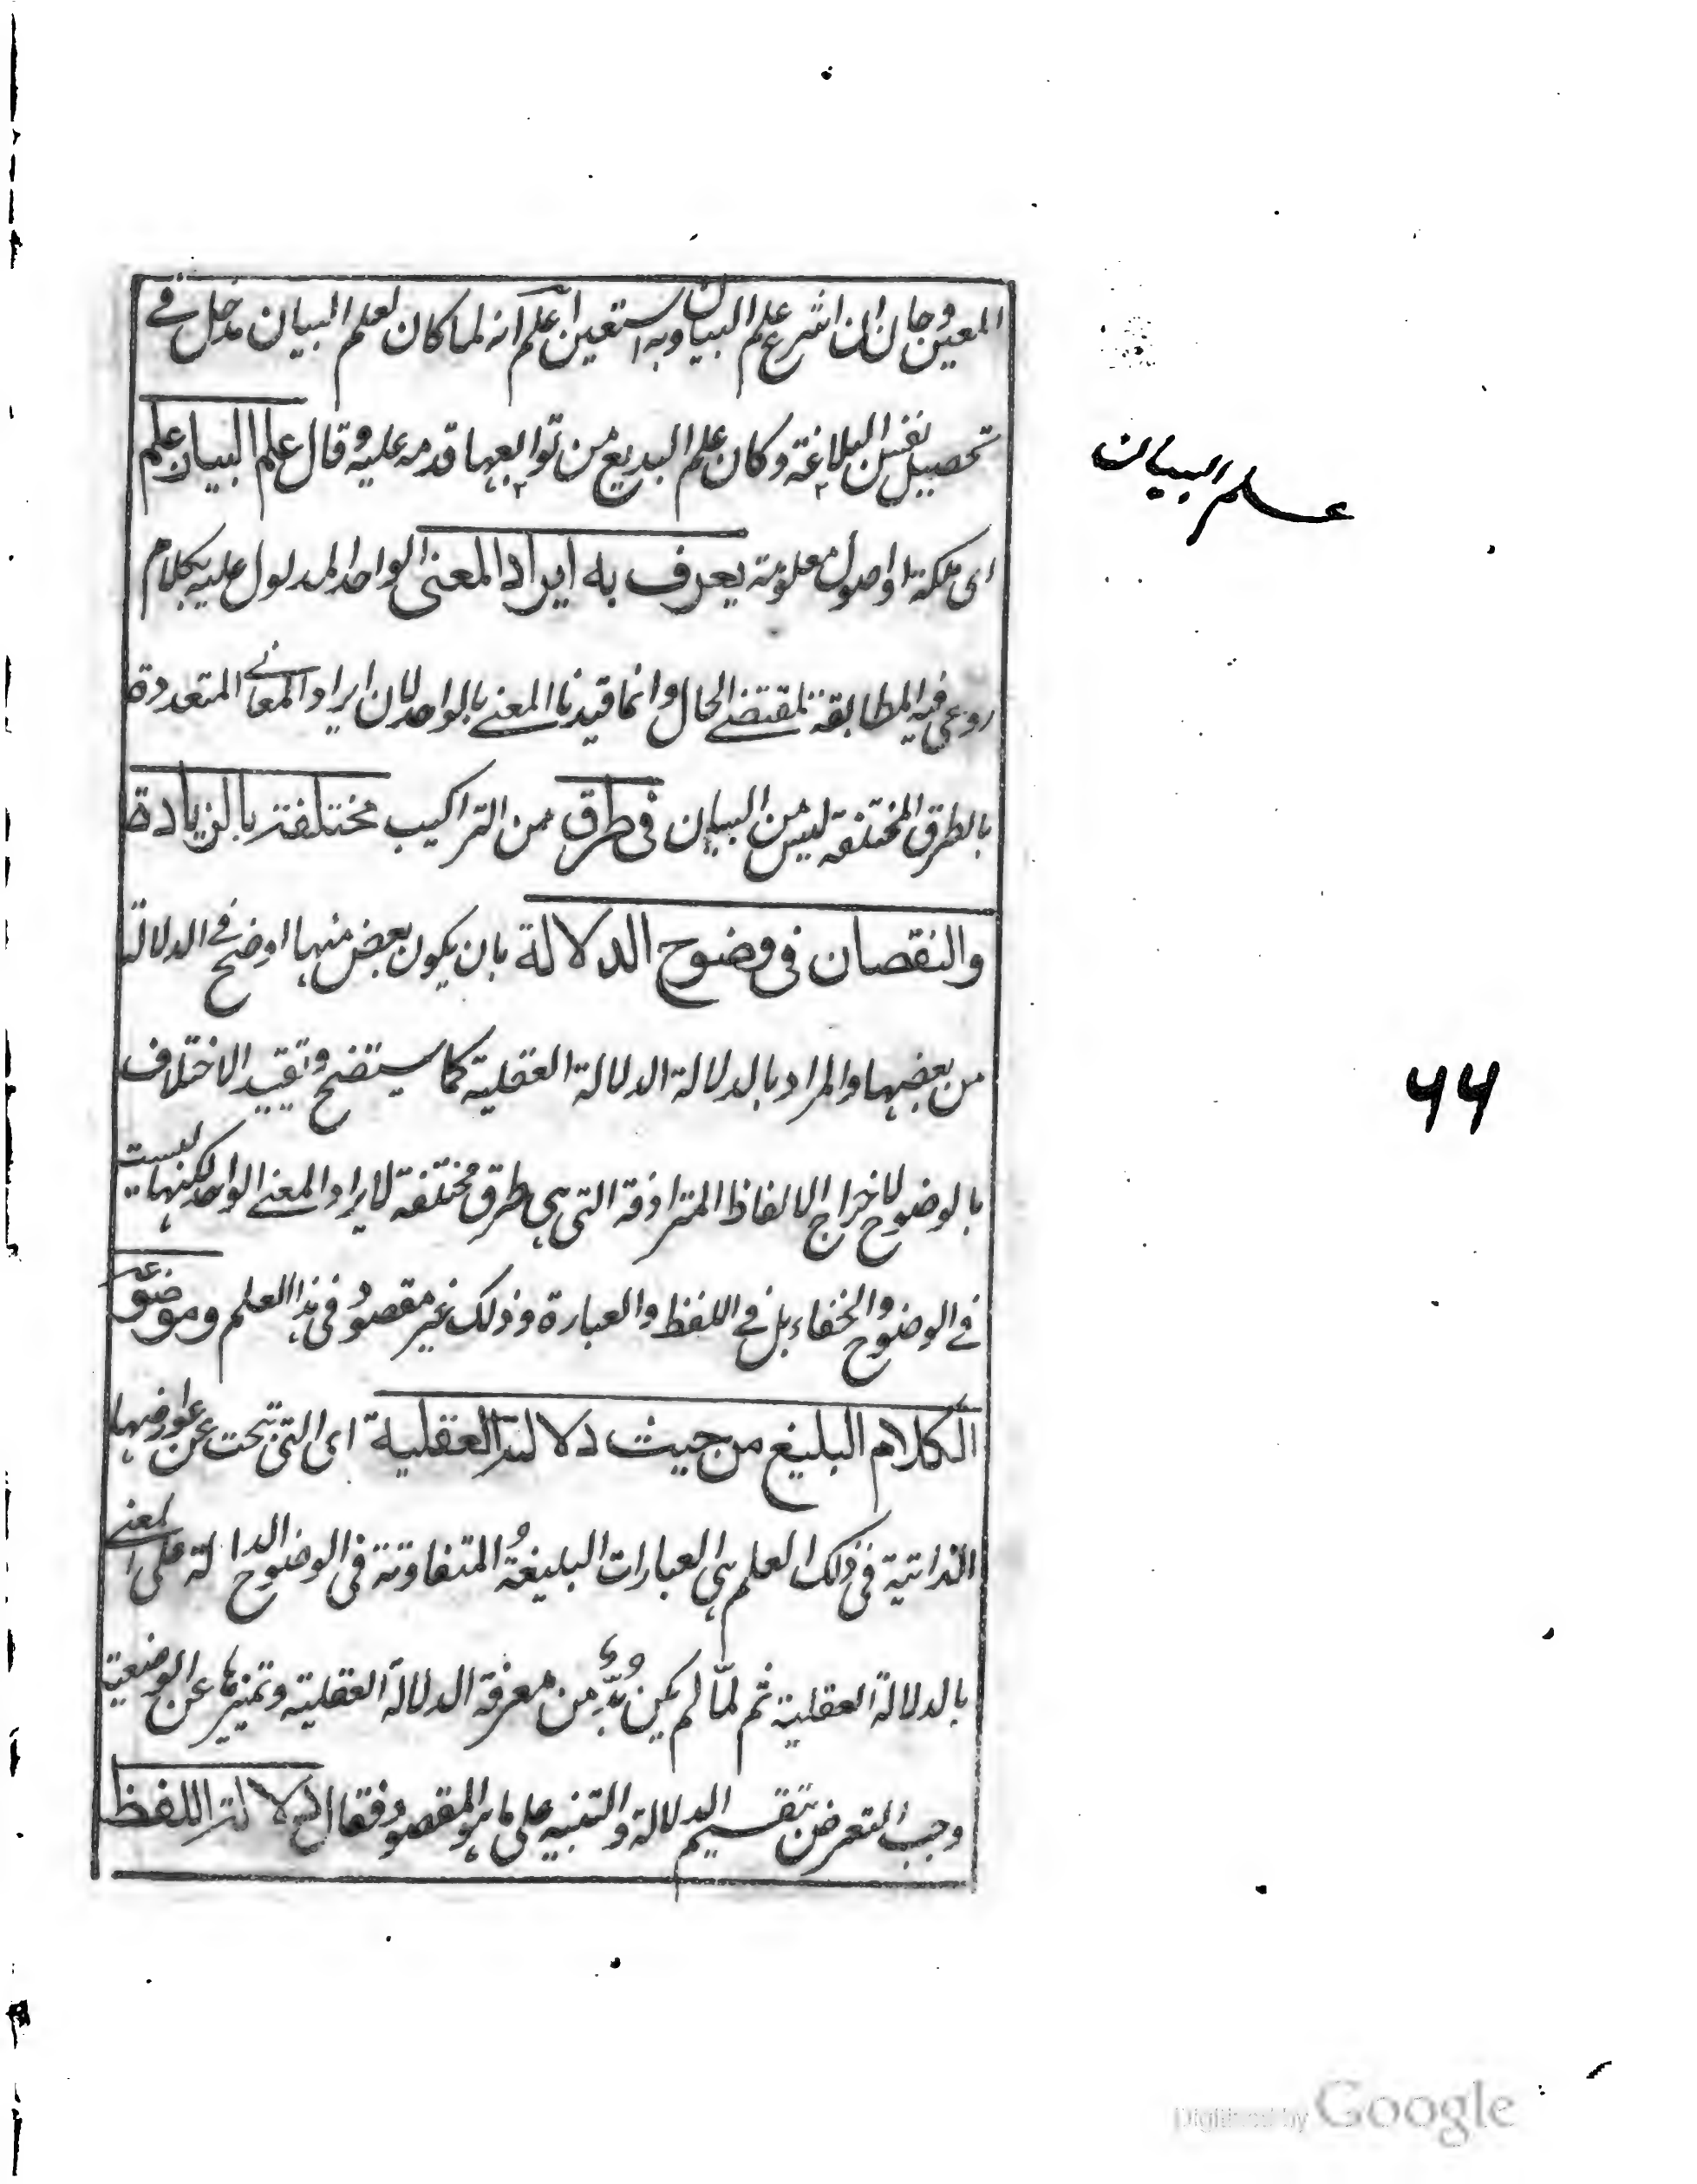 المعين وحان ان اشرع علم البيان وبه استعين اعلم انه لما كان لعلم البيان مدخل في
تحصيل نفس البلاغة وكان علم البديع من توابعها قدمه عليه وقال علم البيان علم
اى ملكة او اصول معلومة يعرف به ايراد المعنى الواحد المدلول عليه بكلام
روعى فيه المطابقة لمقتضى الحال وانما قيدنا المعنى بالواحد لان ايراد المعانى المتعددة
بالطرق المختلفة ليس من البيان فى طرق من التراكيب مختلفة بالزيادة
والنقصان فى وضوح الدلالة بان يكون بعض منها اوضح فى الدلالة
من بعضها والمراد بالدلالة الدلالة العقلية كما سيتضح وتقييد الاختلاف
بالوضوح لاخراج الالفاظ المترادفة التى هى طرق مختلفة لايراد المعنى الواحد لكنها ليست
فى الوضوح والخفاء بل فى اللفظ والعبارة وذلك غير مقصود فى هذا العلم وموضوعه
الكلام البليغ من حيث دلالته العقلية اى التى تبحث عن عوارضها
الذاتية فى ذلك العلم هى العبارات البليغة المتفاوتة فى الوضوح الدالة على المعنى
بالدلالة العقلية ثم لمّا لم يكن بدّ من معرفة الدلالة العقلية وتميزها عن الوضعية
وجب التعرض بتقسيم الدلالة والتنبيه على ما هو المقصود فقال دلالة اللفظ
علم البيان
۶۶
Digitized by Google